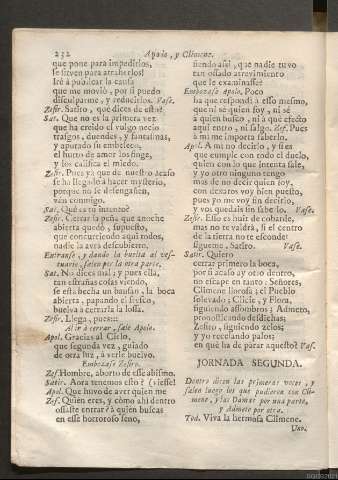 232 Apolo, y Climene.
que pone para impedirlos,
se sirven para atraherlos!
Iré à publicar la causa
que me moviò, por si puedo
disculparme, y reducirlos. Vase.
Zefir. Satiro, que dices de esto?
Sat. Que no es la primera vez
que ha creido el vulgo necio
traigos, duendes, y fantasmas,
y apurado su embeleco,
el hurto de amor los finge,
y los califica el miedo.
Zefir. Pues ya que de nuestro acaso
se ha llegado à hacer mysterio,
porque no se desengañen,
vèn conmigo.
Sat. Què es tu intento?
Zefir. Cerrar la peña que anoche
abierta quedò, supuesto,
que concurriendo aqui todos,
nadie la avrà descubierto.
Entranse, y dando la buelta al vestuario,
salen por la otra parte.
Sat. No dices mal; y pues ella,
tan estrañas cosas viendo,
se està hecha un bausàn, la boca
abierta, papando el fresco,
buelva à cerrarla la losa.
Zefir. Llega, pues::
Al ir à cerrar, sale Apolo.
Apol. Gracias al Cielo,
que segunda vez, guiado
de otra luz, à verle buelvo.
Embozase Zefiro.
Zef. Hombre, aborto de esse abismo.
Satir. Aora tenemos esto?
Apol. Que huvo de aver quien me (viesse!
Zef. Quien eres, y còmo ahi dentro
ossaste entrar? à quien buscas
en esse horroroso seno,
siendo assi, que nadie tuvo
tan ossado atrevimiento
que le examinasse?
Embozase Apolo. Poco
ha que respondì à esso mesmo,
que ni se quien soy, ni sè
à quien busco, ni à què efecto
aqui entro, ni salgo. Zef. Pues
à mi me importa saberlo.
Apol. A mi no decirlo, y si es
que cumple con todo el duelo,
quien con lo que intenta sale,
y yo otro ninguno tengo
mas de no decir quien soy,
con dexaros voy bien puesto,
pues yo me voy sin decirlo,
y vos quedais sin saberlo. Vase.
Zefir. Esso es huir de cobarde,
mas no te valdrà, si el centro
de la tierra no te esconde:
sigueme, Satiro. Vase.
Satir. Quiero
cerrar primero la boca,
por si acaso ay otro dentro,
no escape en tanto: Señores,
Climene llorosa; el Pueblo
solevado; Clicie, y Flora,
siguiendo assombros; Admeto,
pronosticando desdichas;
Zefiro, siguiendo zelos;
y yo recelando palos:
en què ha de parar aquesto? Vase.
JORNADA SEGUNDA.
Dentro dicen las primeras voces, y
salen luego los que pudieren con Climene,
y las Damas por una parte,
y Admeto por otra.
Tod. Viva la hermosa Climene.
Uno.